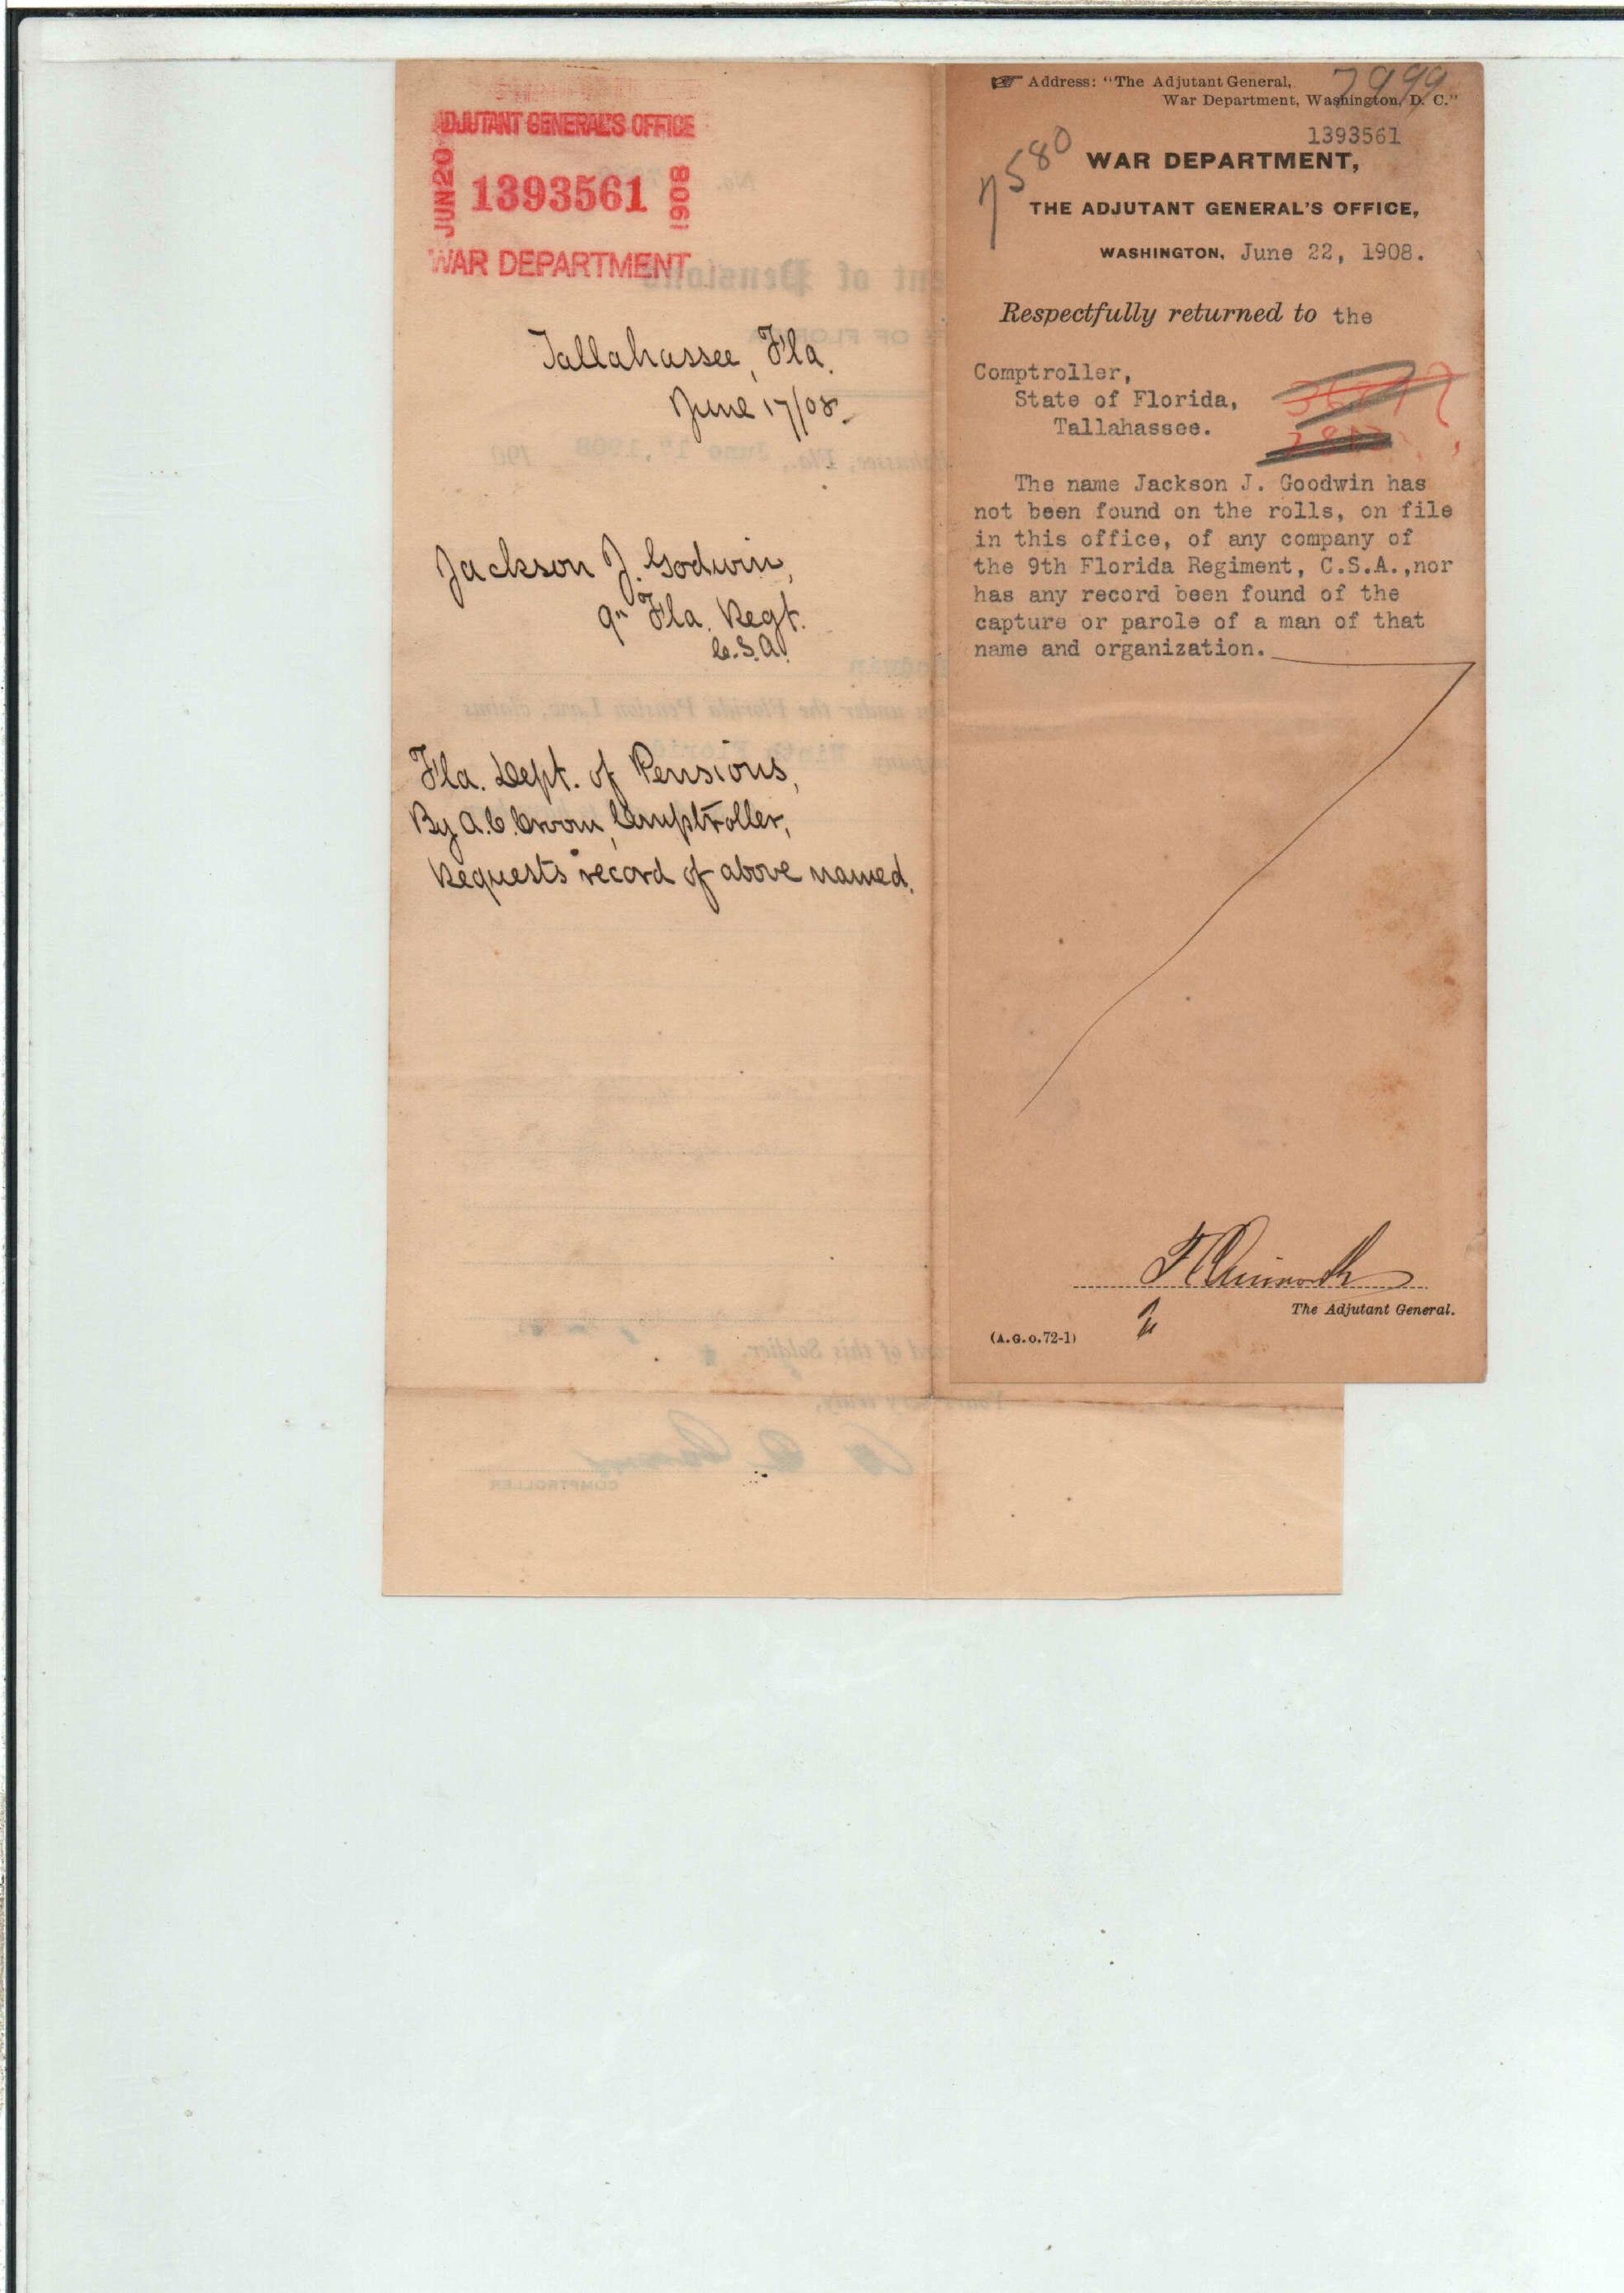 ADJUTANT GENERAL'S OFFICE
JUN 20
1393561
1908
WAR DEPARTMENT
Tallahassee, Fla.
June 17/08.
Jackson J. Godwin,
9" Fla. Regt.
C.S.A.
Fla. Dept. of Pensions,
By A.C. Croom, Comptroller,
Requests record of above named.
7999
Address: "The Adjutant General,
War Department, Washington, D. C."
1393561
7580
WAR DEPARTMENT,
THE ADJUTANT GENERAL'S OFFICE,
WASHINGTON, June 22, 1908.
Respectfully returned to the
Comptroller,
State of Florida,
Tallahassee.
The name Jackson J. Goodwin has
not been found on the rolls, on file
in this office, of any company of
the 9th Florida Regiment, C.S.A.,nor
has any record been found of the
capture or parole of a man of that
name and organization.
F C Ainsworth
The Adjutant General.
(A.G.O.72-1)